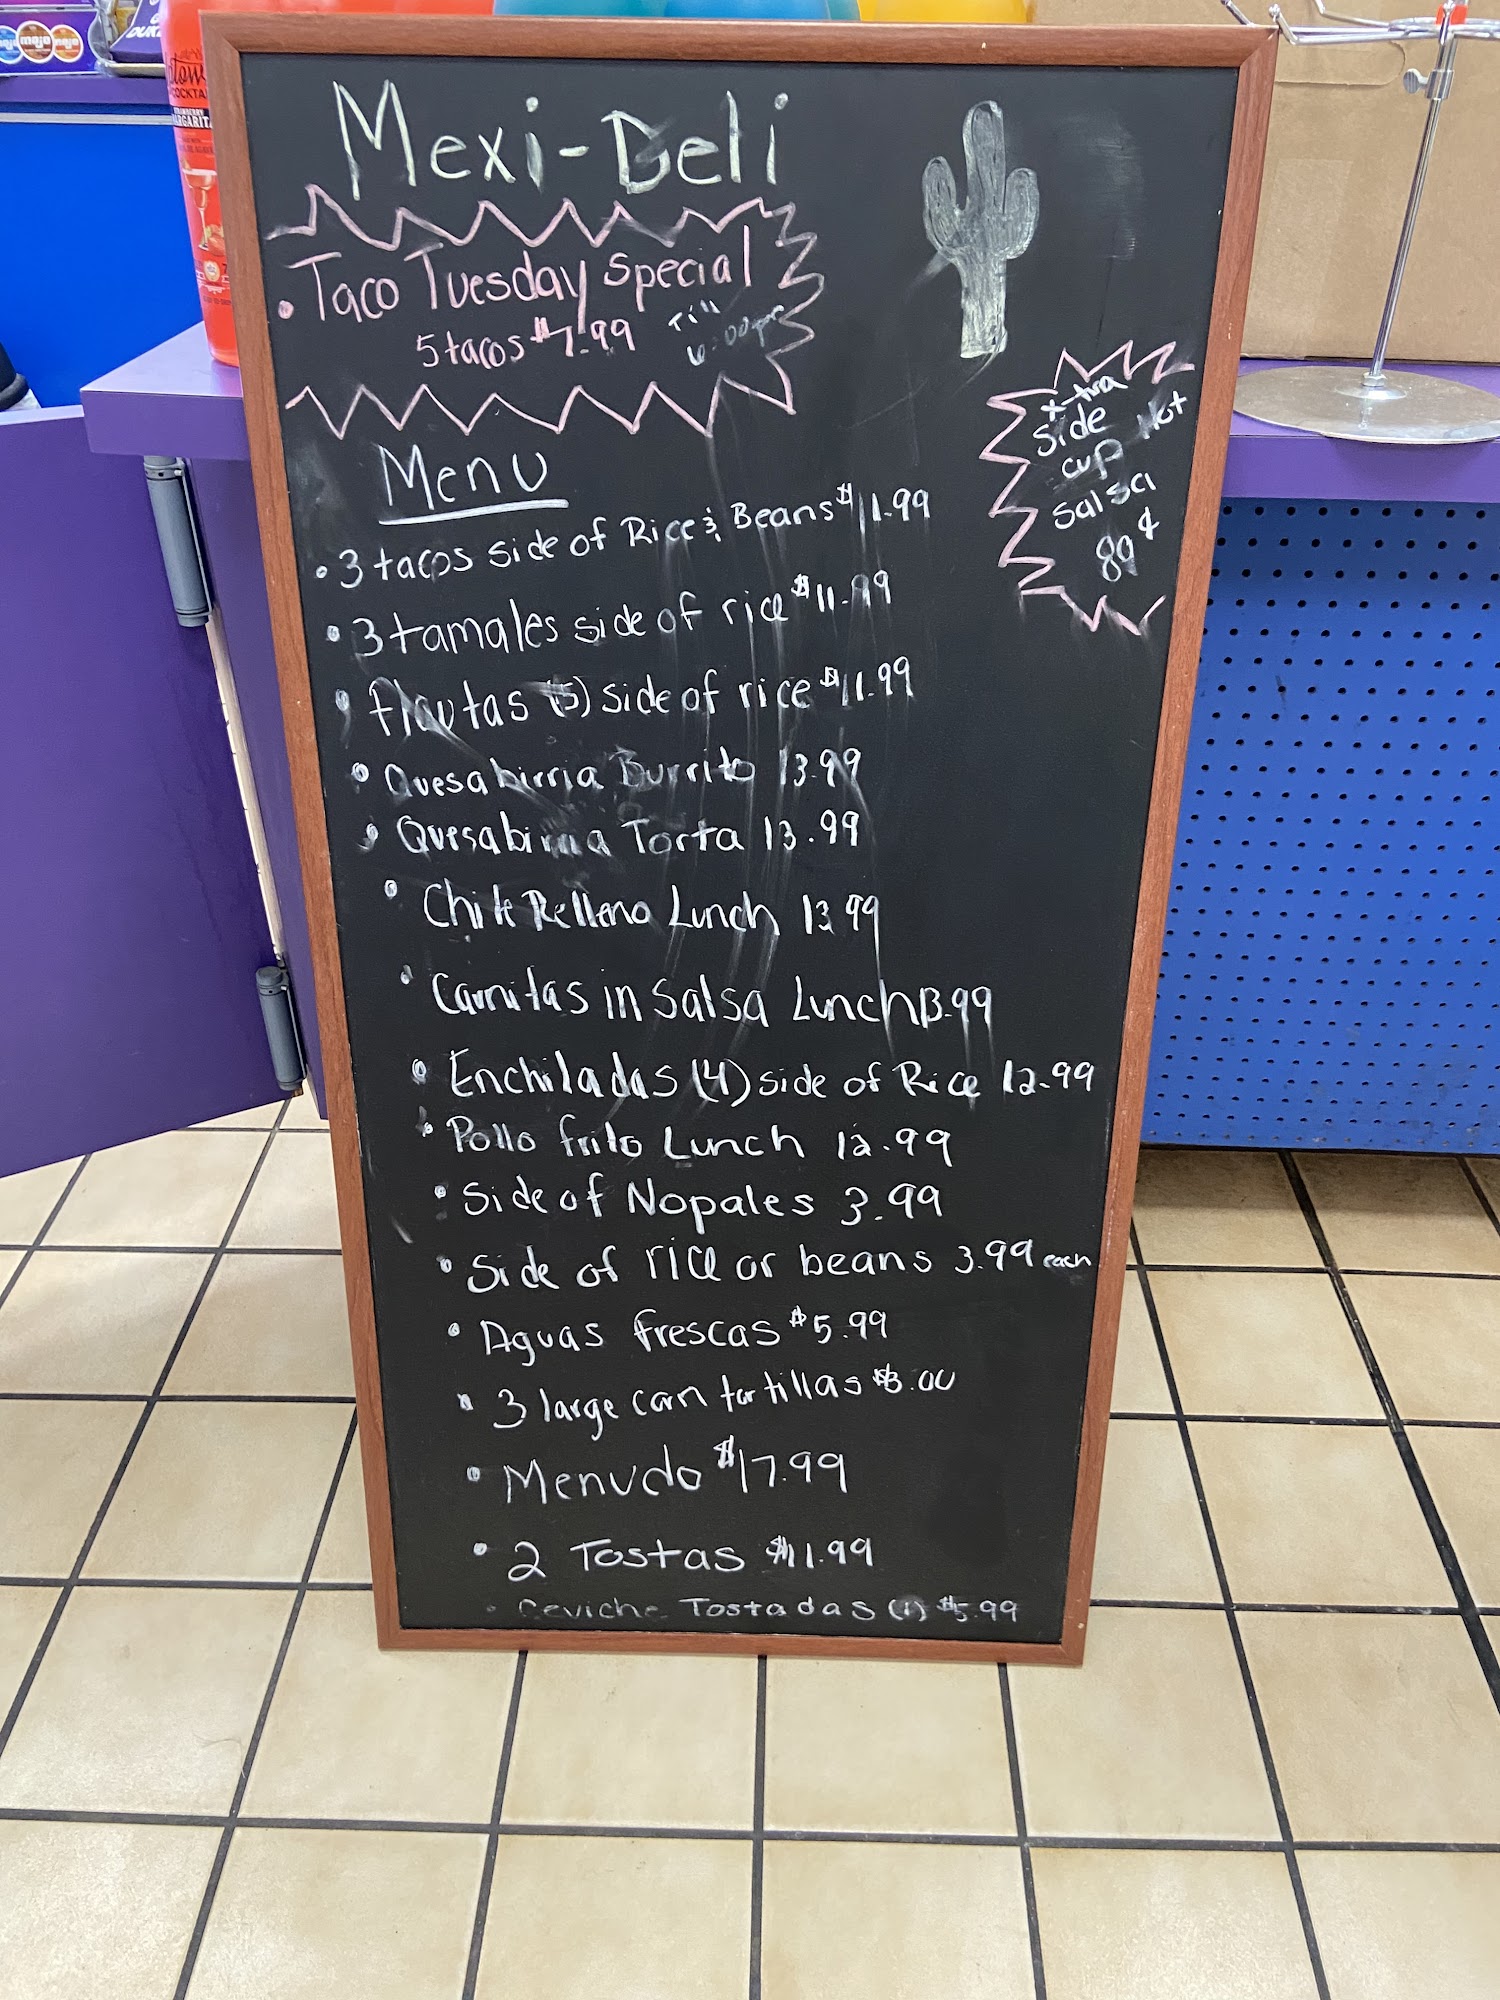 mojo
COCKTA
Mexi-Deli
• Taco Tuesday special
5 tacos $7.99 Till
6:00pm
x-tra
side
cup Hot
salsa
89¢
Menu
• 3 tacos side of Rice & Beans $11.99
• 3 tamales side of rice $11.99
• Flautas (5) side of rice $11.99
• Quesabirria Burrito 13.99
• Quesabirria Torta 13.99
• Chile Relleno Lunch 13.99
• Carnitas in Salsa Lunch 13.99
• Enchiladas (4) side of Rice 12.99
• Pollo frito Lunch 12.99
• Side of Nopales 3.99
• Side of rice or beans 3.99 each
• Aguas frescas $5.99
• 3 large corn tortillas $3.00
• Menudo $17.99
• 2 Tostas $11.99
• Ceviche Tostadas (1) $5.99